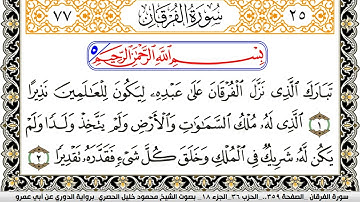 ٧٧ سُورَةُ الْفُرْقَانِ ٢٥
بِسْمِ اللَّهِ الرَّحْمَٰنِ الرَّحِيمِ
تَبَارَكَ الَّذِي نَزَّلَ الْفُرْقَانَ عَلَىٰ عَبْدِهِ لِيَكُونَ لِلْعَالَمِينَ نَذِيرًا
١ الَّذِي لَهُ مُلْكُ السَّمَاوَاتِ وَالْأَرْضِ وَلَمْ يَتَّخِذْ وَلَدًا وَلَمْ
يَكُن لَّهُ شَرِيكٌ فِي الْمُلْكِ وَخَلَقَ كُلَّ شَيْءٍ فَقَدَّرَهُ تَقْدِيرًا ٢
سورة الفرقان _الصفحة ٣٥٩.. الحزب ٣٦ .الجزء ١٨_ بصوت الشيخ محمود خليل الحصري_برواية الدوري عن أبي عمرو